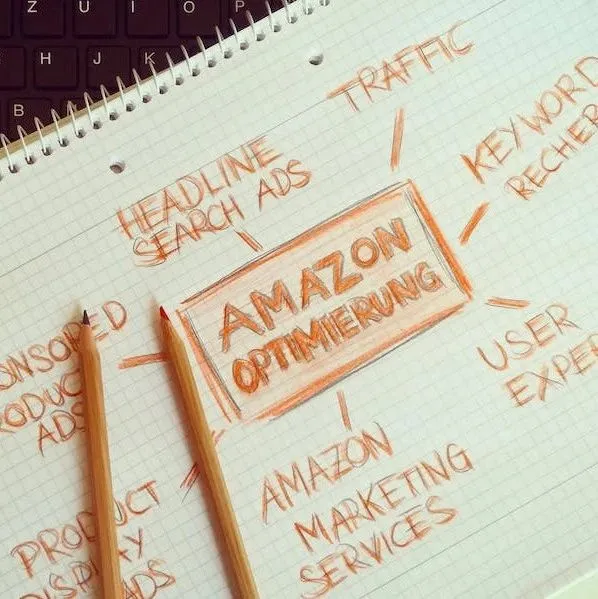 Z U I O P
H J K
B
TRAFFIC
HEADLINE
SEARCH ADS
KEYWORD
RECHER
AMAZON
OPTIMIERUNG
ONSORED
RODUC
ADS
USER
EXPER
AMAZON
MARKETING
SERVICES
PRODUCT
DISPLAY
ADS